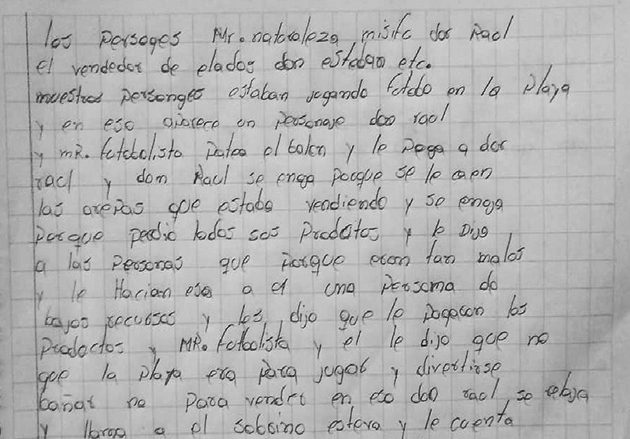 los persoges Mr. naturaleza misifc don Racl
el vendedor de elados don esteban etc.
nuestros personges estaban jugando futobo en la playa
y en eso aparece un personaje don racl
y mR. futobolista patea el balon y le pega a don
racl y dom Racl se enoja porque se le caen
las arepas que estaba vendiendo y se enoja
porque perdio todos sos Prodoctos y le Dijo
a las personas que porque eram tan malos
y le Hacian eso a el una persoma de
bajos recursos y les dijo que le pagaran los
Prodoctos y MR. futbolista y el le dijo que no
que la playa era para jugar y divertirse
bañar no para vender en eso don racl se relaja
y llama a el sobrino esteva y le cuenta